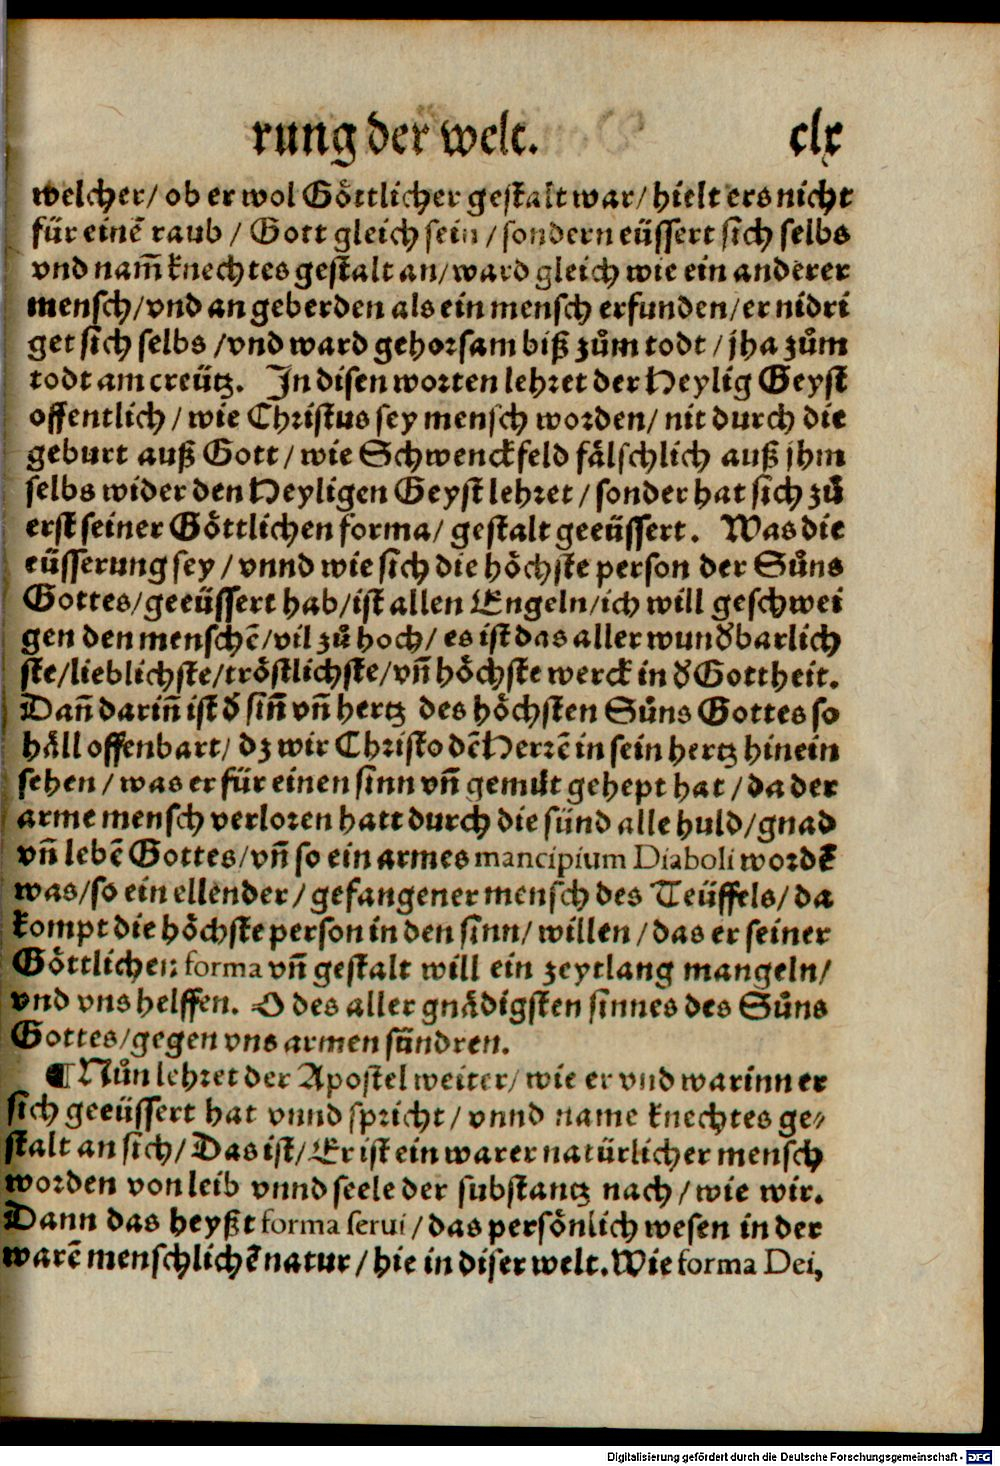 rung der welt. clx
welcher/ ob er wol Göttlicher gestalt war/ hielt ers nicht
für einẽ raub / Gott gleich sein / sondern eüssert sich selbs
vnd nam̃ knechtes gestalt an/ ward gleich wie ein anderer
mensch/ vnd an geberden als ein mensch erfunden/ er nidri
get sich selbs / vnd ward gehorsam biß zům todt / jha zům
todt am creütz. In disen worten lehret der Heylig Geyst
offentlich / wie Christus sey mensch worden/ nit durch die
geburt auß Gott/ wie Schwenckfeld fälschlich auß jhm
selbs wider den Heyligen Geyst lehret / sonder hat sich zů
erst seiner Göttlichen forma/ gestalt geeüssert. Was die
eüsserung sey / vnnd wie sich die höchste person der Sůns
Gottes/geeüssert hab/ist allen Engeln/ich will geschwei
gen den menschẽ/vil zů hoch/ es ist das aller wundbarlich
ste/lieblichste/tröstlichste/vñ höchste werck in d̕ Gottheit.
Dañ dariñ ist d̕ siñ vñ hertz des höchsten Sůns Gottes so
häll offenbart/ dz wir Christo dẽ Herrẽ in sein hertz hinein
sehen / was er für einen sinn vñ gemüt gehept hat / da der
arme mensch verloren hatt durch die sünd alle huld/gnad
vñ lebẽ Gottes/vñ so ein armes mancipium Diaboli wordẽ
was/so ein ellender / gefangener mensch des Teüffels/ da
kompt die höchste person in den sinn/ willen / das er seiner
Göttlichen forma vñ gestalt will ein zeytlang mangeln/
vnd vns helffen. O des aller gnädigsten sinnes des Sůns
Gottes/gegen vns armen sündren.
¶ Nůn lehret der Apostel weiter/ wie er vnd warinn er
sich geeüssert hat vnnd spricht / vnnd name knechtes ge⸗
stalt an sich/ Das ist/ Er ist ein warer natürlicher mensch
worden von leib vnnd seele der substantz nach / wie wir.
Dann das heyßt forma serui / das persönlich wesen in der
warẽ menschlichẽ natur / hie in diser welt. Wie forma Dei,
Digitalisierung gefördert durch die Deutsche Forschungsgemeinschaft - DFG